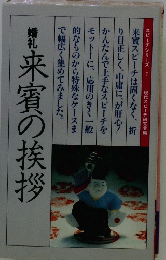 婚礼
来賓の挨拶
来賓スピーチは固くなく、折
り目正しく、中庸に、が肝心！
かんたんで上手なスピーチを
モットーに、応用のきく一般
的なものから特殊なケースま
で幅広く集めてみました。